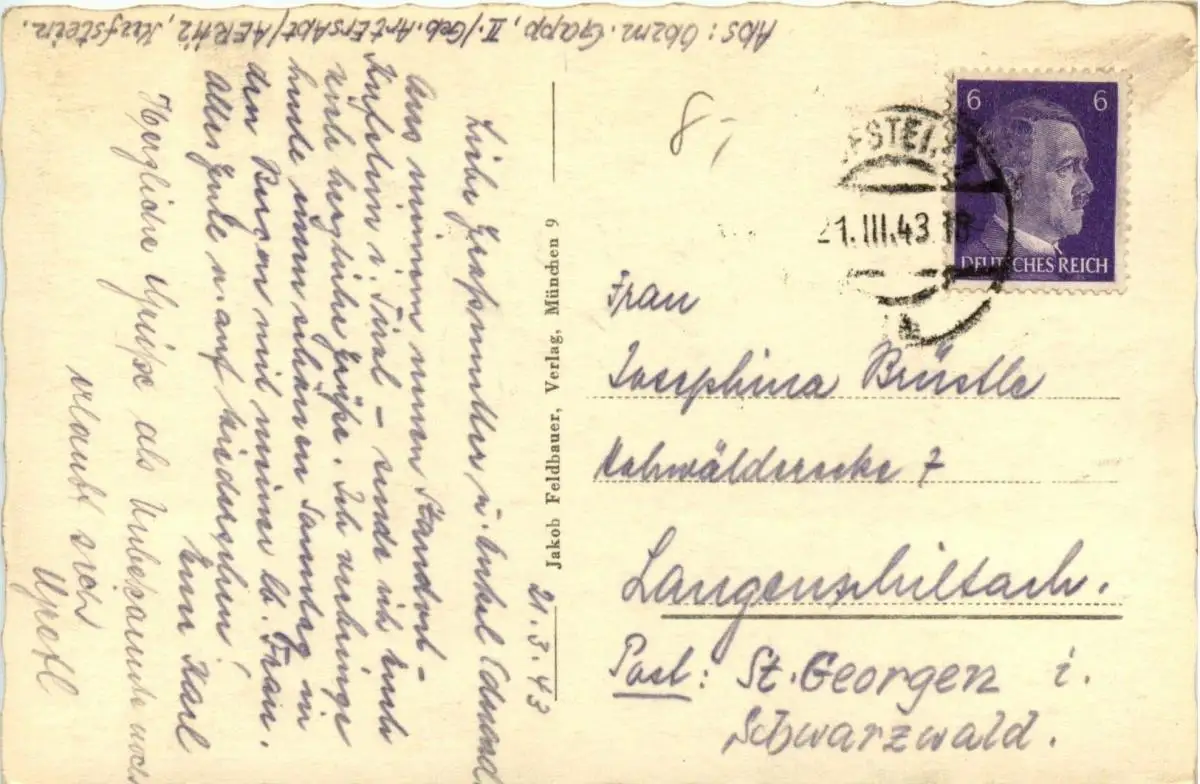 Abs: Obzm. Gapp, II./Geb. Art Ers Abt/AER 112 Kufstein.
21.3.43
Liebe Großmutter u. Onkel Edmund
Aus meinem neuen Standort –
Kufstein i. Tirol – sende ich Euch
viele herzliche Grüße. Ich verbringe
heute einen schönen Sonntag in
den Bergen mit meiner lb. Frau.
Alles Gute u. auf Wiedersehen!
Euer Karl
Herzliche Grüße als Unbekannte noch
erlaubt sich
Gretl
Jakob Feldbauer, Verlag, München 9
8,-
6 6
DEUTSCHES REICH
21.III.43 18
Frau
Josephina Brüstle
7
Langenschiltach.
Post: St. Georgen i.
Schwarzwald.